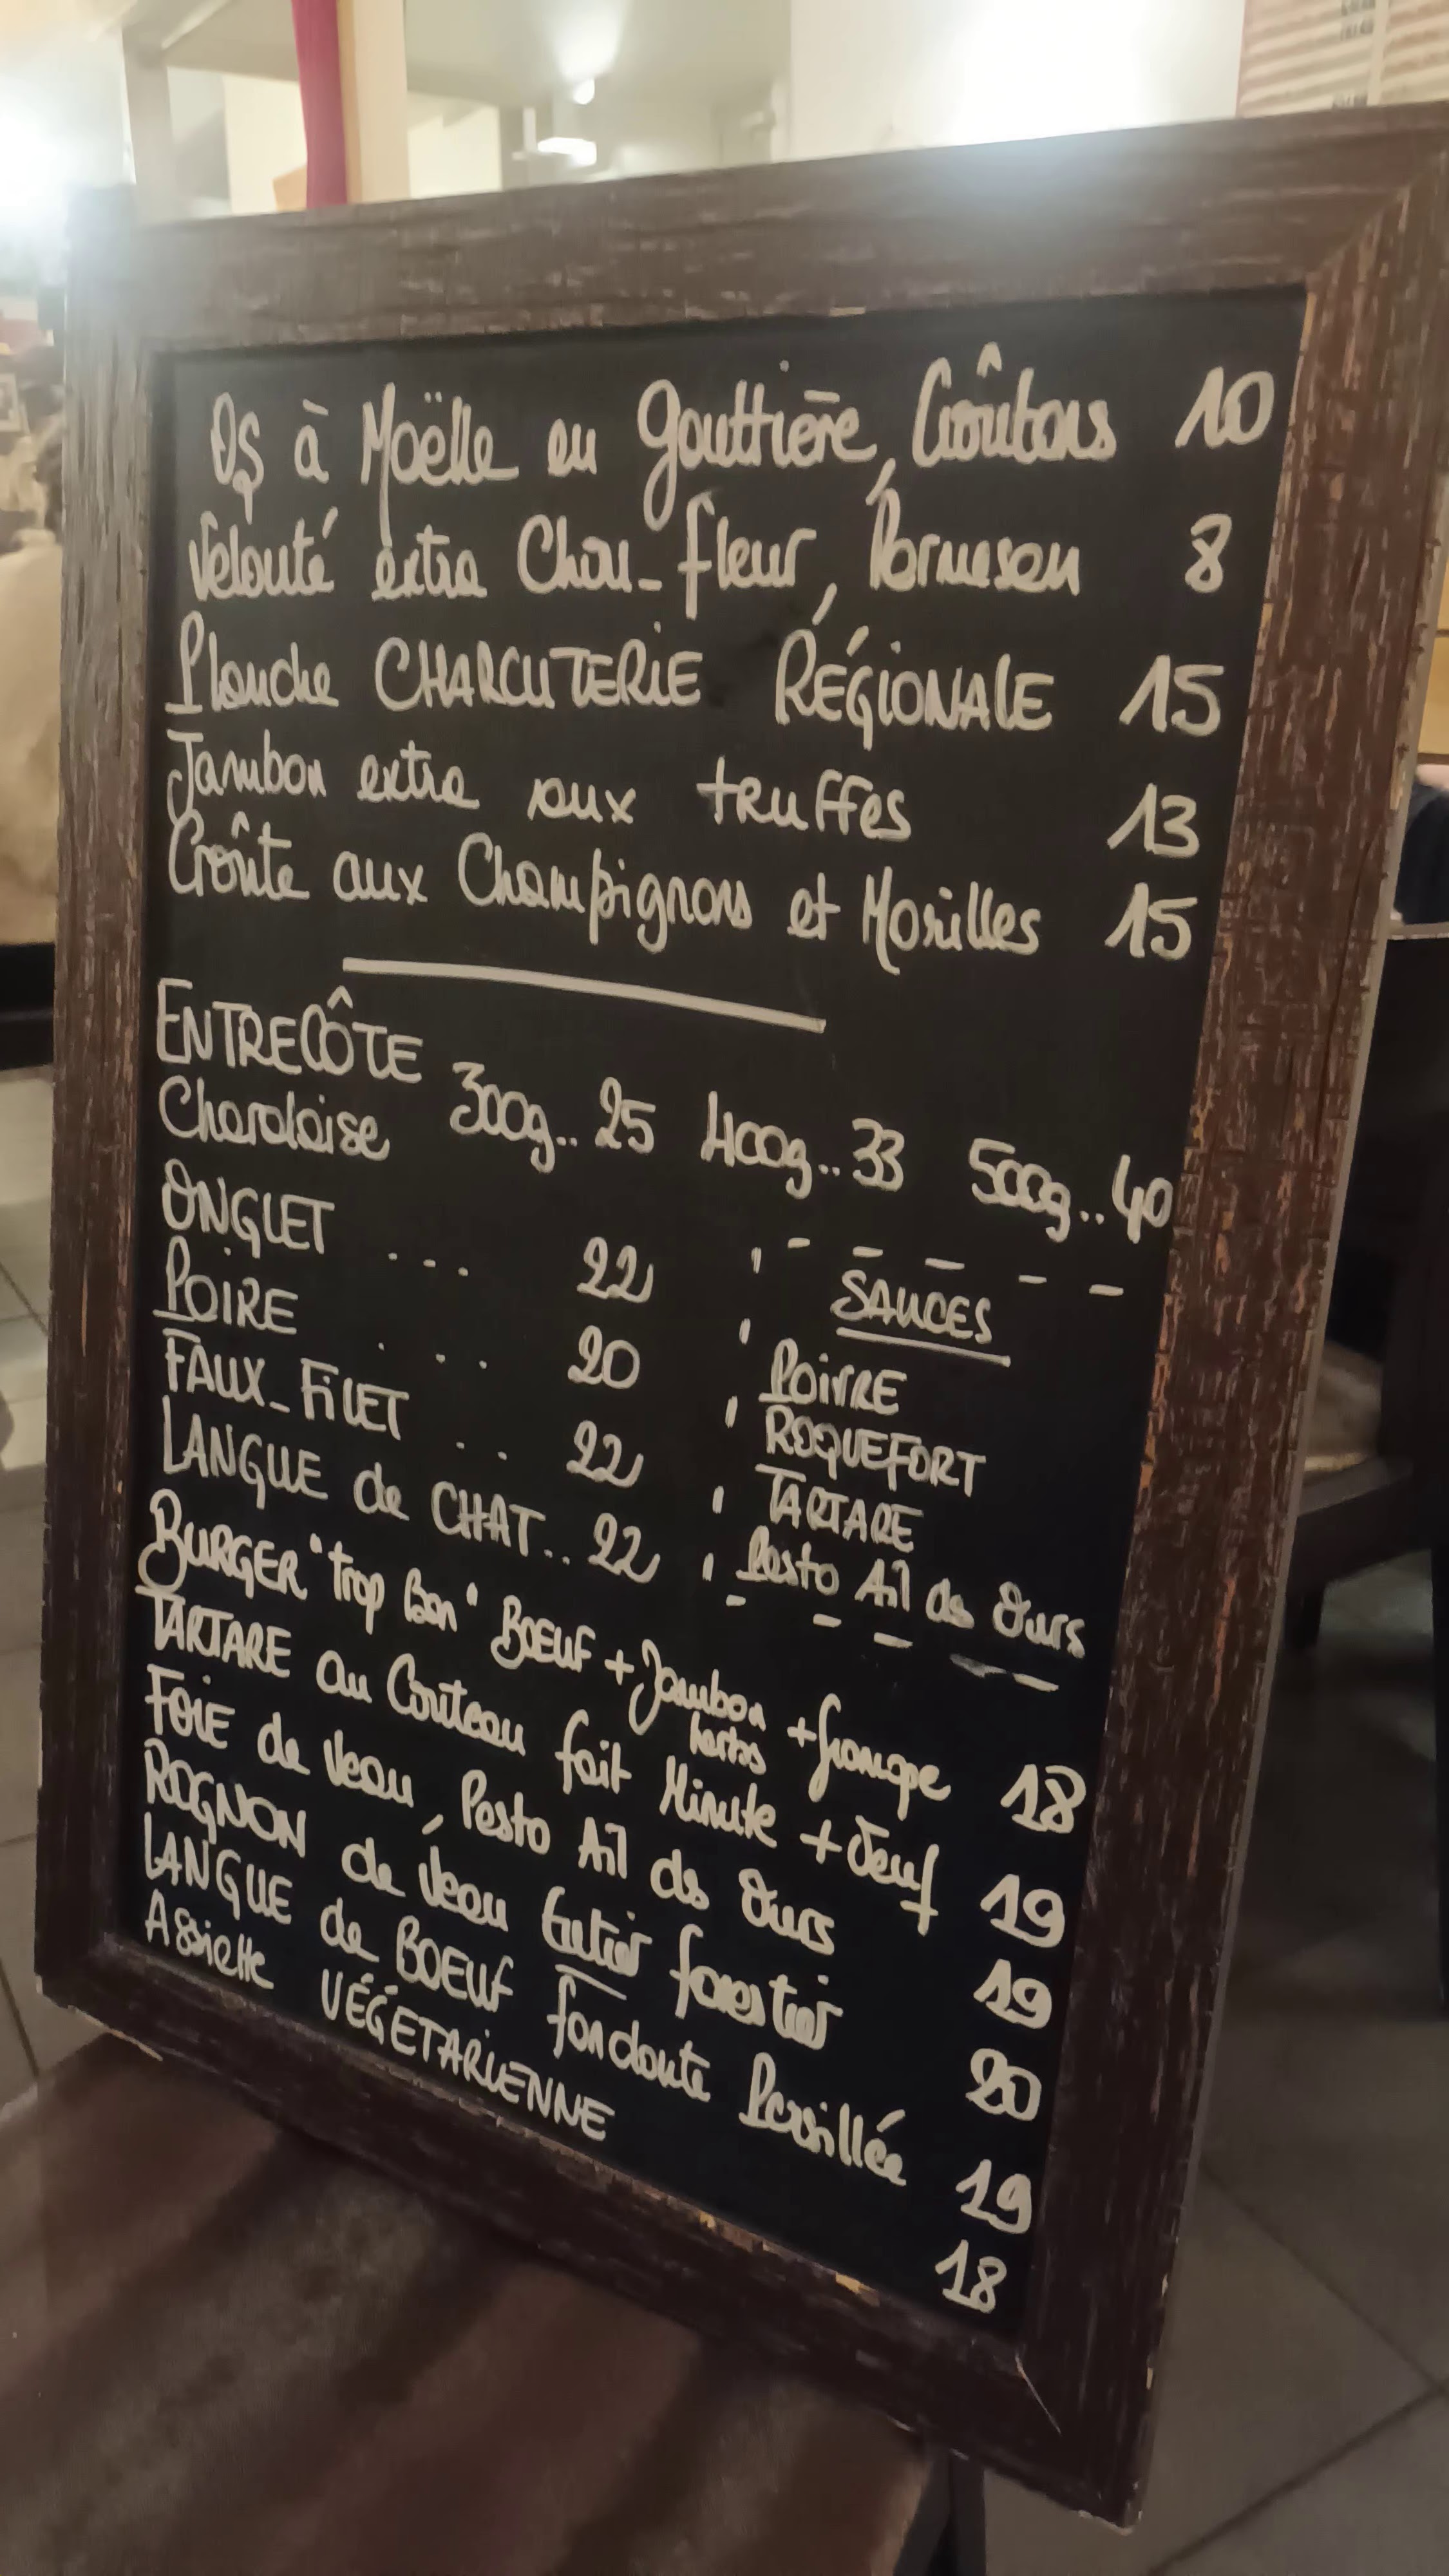 Os à Moëlle en gouttière, Croûtons 10
Velouté extra Chou-fleur, Parmesan 8
Planche CHARCUTERIE RÉGIONALE 15
Jambon extra aux truffes 13
Croûte aux Champignons et Morilles 15
ENTRECÔTE
Charolaise 300g.. 25 400g.. 33 500g.. 40
ONGLET ... 22
POIRE ... 20
FAUX-FILET .. 22
LANGUE de CHAT.. 22
SAUCES
POIVRE
ROQUEFORT
TARTARE
Pesto Ail des Ours
BURGER "trop bon" BOEUF + Jambon herbes + frompe 18
TARTARE au Couteau fait Minute + Oeuf 19
FOIE de Veau, Pesto Ail des Ours 19
ROGNON de Veau Entier forestier 20
LANGUE de BOEUF fondante Persillée 19
Assiette VÉGÉTARIENNE 18